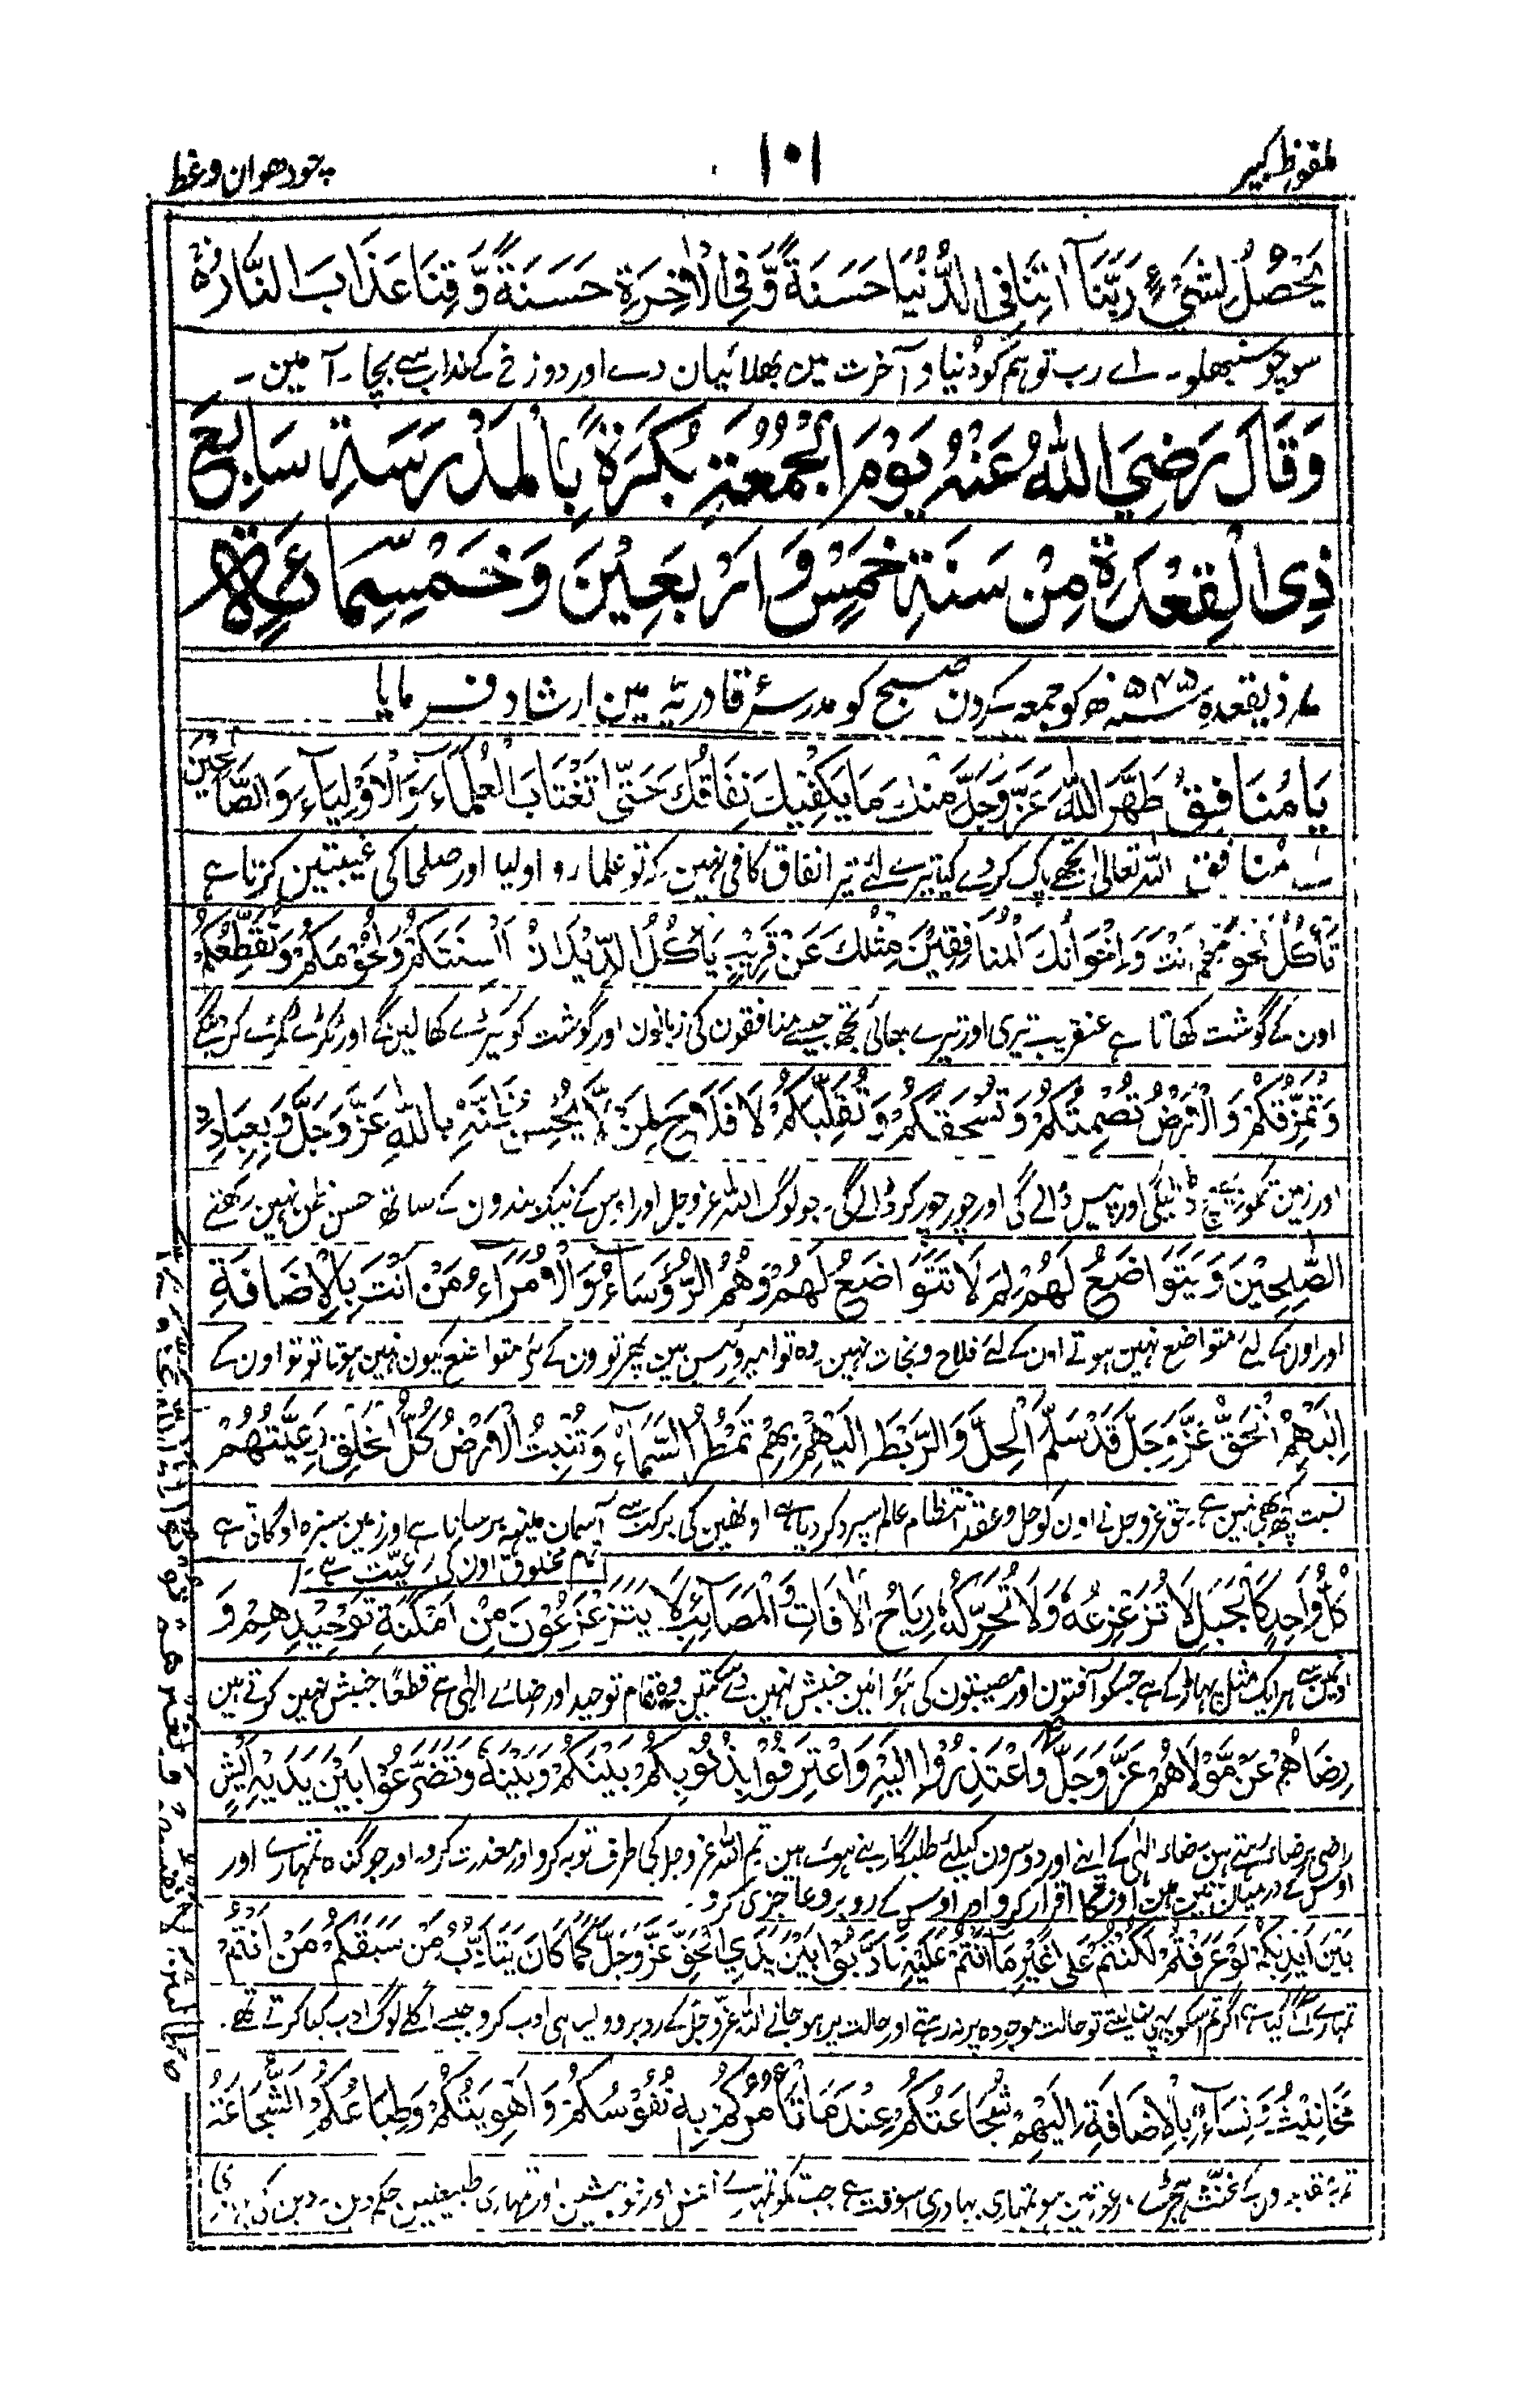 ملفوظ کبیر
۱۰۱
چودھوان وعظ
يَحْصُلُ لِشَيْءٍ رَبَّنَآ اٰتِنَا فِي الدُّنْيَا حَسَنَةً وَّفِي الْاٰخِرَةِ حَسَنَةً وَّقِنَا عَذَابَ النَّارِ ہ
سوچو سنبھلو۔ اے رب تو ہم کو دُنیا و آخرت مین بھلائیان دے اور دوزخ کے عذاب سے بچا۔ آمین۔
وَقَالَ رَضِيَ اللّٰهُ عَنْهُ يَوْمَ الْجُمُعَةِ بُكْرَةً بِالْمَدْرَسَةِ سَابِعَ
ذِي الْقِعْدَةِ مِنْ سَنَةِ خَمْسٍ وَّاَرْبَعِيْنَ وَخَمْسِمِائَةٍ
۷؍ ذیقعدہ ۵۴۵ھ کو جمعہ کے دن صبح کو مدرسۂ قادریہ مین ارشاد فرمایا
يَا مُنَافِقُ طَهَّرَ اللّٰهُ عَزَّ وَجَلَّ مِنْكَ مَا يَكْفِيْكَ نِفَاقُكَ حَتّٰى تَغْتَابَ الْعُلَمَآءَ وَالْاَوْلِيَآءَ وَالصَّالِحِيْنَ
اے منافق اللہ تعالیٰ تجھے پاک کر دے کیا تیرے لئے تیرا نفاق کافی نہین کہ تو علماء و اولیا اور صلحا کی غیبتین کرتا ہے
تَأْكُلُ لُحُوْمَهُمْ اَنْتَ وَاِخْوَانُكَ الْمُنَافِقِيْنَ مِثْلَكَ عَنْ قَرِيْبٍ يَأْكُلُ الدِّيْدَانُ اَلْسِنَتَكُمْ وَلُحُوْمَكُمْ وَتُقَطِّعُكُمْ
اون کے گوشت کھاتا ہے عنقریب تیری اور تیرے بھائی تجھ جیسے منافقون کی زبانون اور گوشت کو کیڑے کھا لین گے اور ٹکڑے ٹکڑے کر دینگے
وَتُمَزِّقُكُمْ وَالْاَرْضُ تُصْمِتُكُمْ وَتَسْحَقُكُمْ وَتُقَلِّبُكُمْ لَا فَلَاحَ لِمَنْ لَّا يُحْسِنُ ظَنَّهٗ بِاللّٰهِ عَزَّ وَجَلَّ وَبِعِبَادِهِ
اور زمین تمکو بھینچ ڈالیگی اور پیس ڈالے گی اور چور چور کر ڈالے گی۔ جو لوگ اللہ عزوجل اور اوس کے نیک بندون کے ساتھ حسن ظن نہین رکھتے
الصّٰلِحِيْنَ وَيَتَوَاضَعُ لَهُمْ لِمَ لَا تَتَوَاضَعُ لَهُمْ وَهُمُ الرُّؤَسَآءُ وَالْاُمَرَآءُ مَنْ اَنْتَ بِالْاِضَافَةِ
اور اون کے لئے متواضع نہین ہوتے اون کے لئے فلاح و نجات نہین۔ وہ تو امیر و رئیس ہین پھر تو اون کے لئے متواضع کیون نہین ہوتا تو تو اون کے
اِلَيْهِمُ الْحَقُّ عَزَّ وَجَلَّ قَدْ سَلَّمَ الْحِلَّ وَالرَّبْطَ اِلَيْهِمْ بِهِمْ تَمْطُرُ السَّمَآءُ وَتُنْبِتُ الْاَرْضُ كُلُّ الْخَلْقِ رَعِيَّتُهُمْ
نسبت کچھ بھی نہین ہے۔ حق عزوجل نے اون کو حل و عقد انتظام عالم سپرد کر دیا ہے اونھین کی برکت سے آسمان مینھ برساتا ہے اور زمین سبزہ اوگاتی ہے
تمام مخلوق اون کی رعیّت ہے۔
كُلُّ وَاحِدٍ كَالْجَبَلِ لَا تُزَعْزِعُهٗ وَلَا تُحَرِّكُهٗ رِيَاحُ الْاٰفَاتِ وَالْمَصَآئِبِ لَا يَتَزَعْزَعُوْنَ مِنْ اَمْكِنَةِ تَوْحِيْدِهِمْ وَ
اونمین سے ہر ایک مثل پہاڑ کے ہے جسکو آفتون اور مصیبتون کی ہوائین جنبش نہین دے سکتین وہ مقام توحید اور رضائے الٰہی سے قطعًا جنبش نہین کرتے ہین
رِضَاهُمْ عَنْ مَّوْلَاهُمْ عَزَّ وَجَلَّ وَاعْتَذِرُوْا اِلَيْهِ وَاعْتَرِفُوْا بِذُنُوْبِكُمْ بَيْنَكُمْ وَبَيْنَهٗ وَتَضَرَّعُوْا بَيْنَ يَدَيْهِ اَيْشٍ
راضی برضا رہتے ہین رضاء الٰہی کے اپنے اور دوسرون کیلئے طلبگار بنے ہوئے ہین تم اللہ عزوجل کی طرف توبہ کرو اور معذرت کرو۔ اور جو گناہ تمہارے اور
اوس کے درمیان مین ہین اونکا اقرار کرو اور اوس کے روبرو عاجزی کرو۔
بَيْنَ اَيْدِيْكُمْ لَوْ عَرَفْتُمْ لَكُنْتُمْ عَلٰى غَيْرِ مَا اَنْتُمْ عَلَيْهِ تَاَدَّبُوْا بَيْنَ يَدَيِ الْحَقِّ عَزَّ وَجَلَّ كَمَا كَانَ يَتَاَدَّبُ مَنْ سَبَقَكُمْ مَنْ اَنْتُمْ
تمہارے آگے کیا ہے اگر تم اسکو پہچانتے تو حالت موجودہ پر نہ رہتے اور حالت پر ہو جاتے اللہ عزّوجلّ کے روبرو ویسا ہی ادب کرو جیسے اگلے لوگ ادب کیا کرتے تھے۔
مَخَانِيْثُ وَنِسَآءٌ بِالْاِضَافَةِ اِلَيْهِمْ شُجَاعَتُكُمْ عِنْدَ مَا تَأْمُرُكُمْ بِهٖ نُفُوْسُكُمْ وَاَهْوِيَتُكُمْ وَطِبَاعُكُمُ الشُّجَاعَةُ
مخنث ہیجڑے اور عورتین ہو تمہاری بہادری اسوقت ہے جب تمکو تمہارے نفس اور خواہشین اور تمہاری طبیعتین حکم دین۔ دین کی